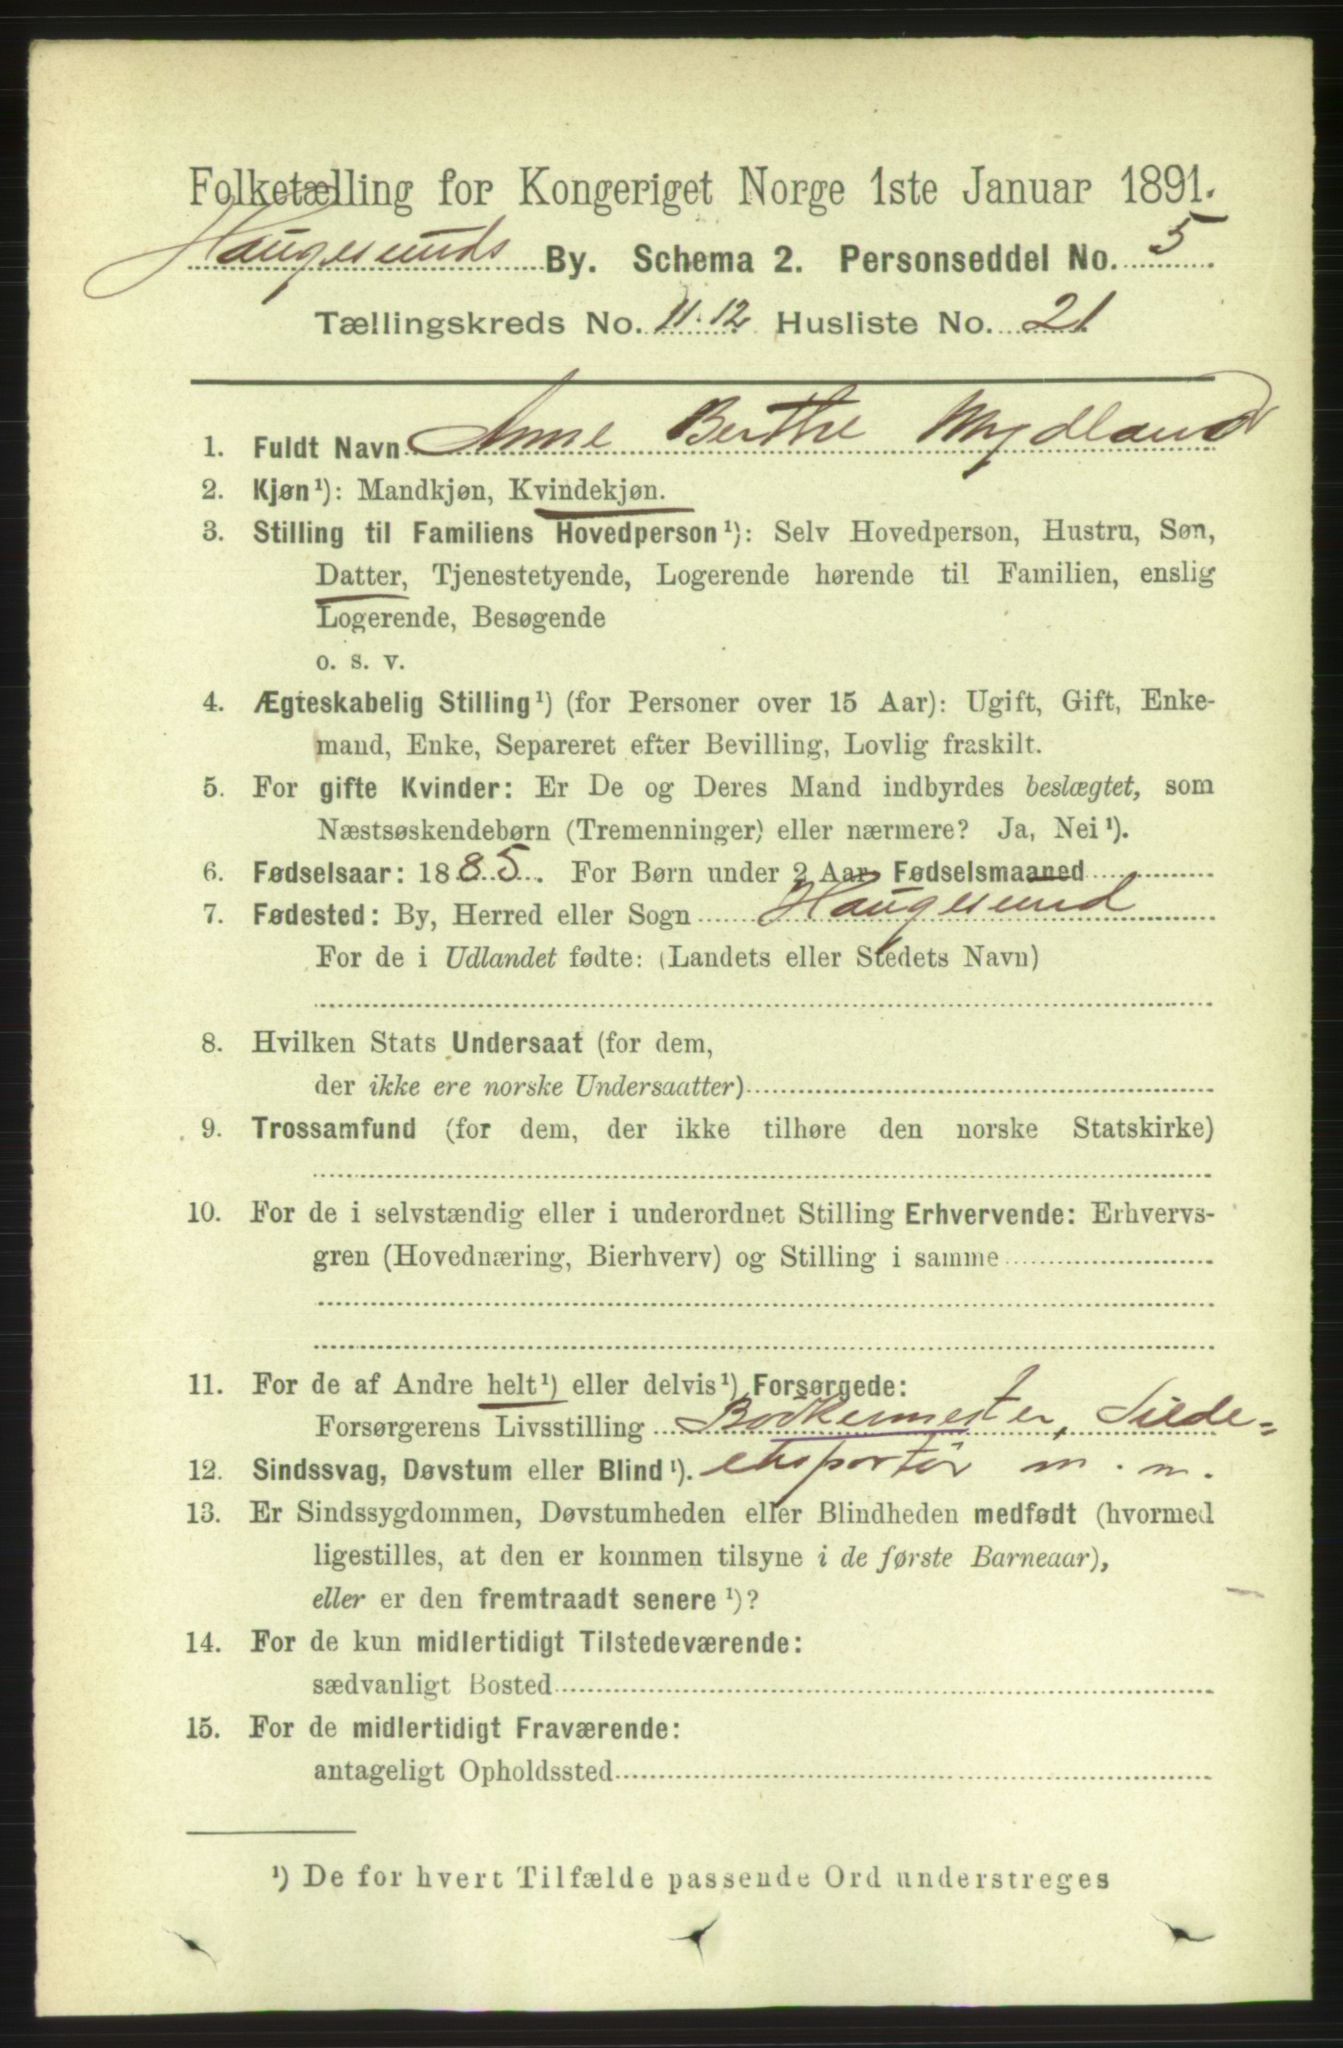 Folketælling for Kongeriget Norge 1ste Januar 1891.
Haugesunds By. Schema 2. Personseddel No. 5
Tællingskreds No. 11.12 Husliste No. 21
1. Fuldt Navn Anne Berthe Mydland
2. Kjøn¹): Mandkjøn, Kvindekjøn.
3. Stilling til Familiens Hovedperson¹): Selv Hovedperson, Hustru, Søn,
Datter, Tjenestetyende, Logerende hørende til Familien, enslig
Logerende, Besøgende
o. s. v.
4. Ægteskabelig Stilling¹) (for Personer over 15 Aar): Ugift, Gift, Enke-
mand, Enke, Separeret efter Bevilling, Lovlig fraskilt.
5. For gifte Kvinder: Er De og Deres Mand indbyrdes beslægtet, som
Næstsøskendebørn (Tremenninger) eller nærmere? Ja, Nei¹).
6. Fødselsaar: 1885. For Børn under 2 Aar Fødselsmaaned
7. Fødested: By, Herred eller Sogn Haugesund
For de i Udlandet fødte: (Landets eller Stedets Navn)
8. Hvilken Stats Undersaat (for dem,
der ikke ere norske Undersaatter)
9. Trossamfund (for dem, der ikke tilhøre den norske Statskirke)
10. For de i selvstændig eller i underordnet Stilling Erhvervende: Erhvervs-
gren (Hovednæring, Bierhverv) og Stilling i samme
11. For de af Andre helt¹) eller delvis¹) Forsørgede:
Forsørgerens Livsstilling Bødkermester, Silde-
12. Sindssvag, Døvstum eller Blind¹). eksportør m. m.
13. Er Sindssygdommen, Døvstumheden eller Blindheden medfødt (hvormed
ligestilles, at den er kommen tilsyne i de første Barneaar),
eller er den fremtraadt senere¹)?
14. For de kun midlertidigt Tilstedeværende:
sædvanligt Bosted
15. For de midlertidigt Fraværende:
antageligt Opholdssted
¹) De for hvert Tilfælde passende Ord understreges